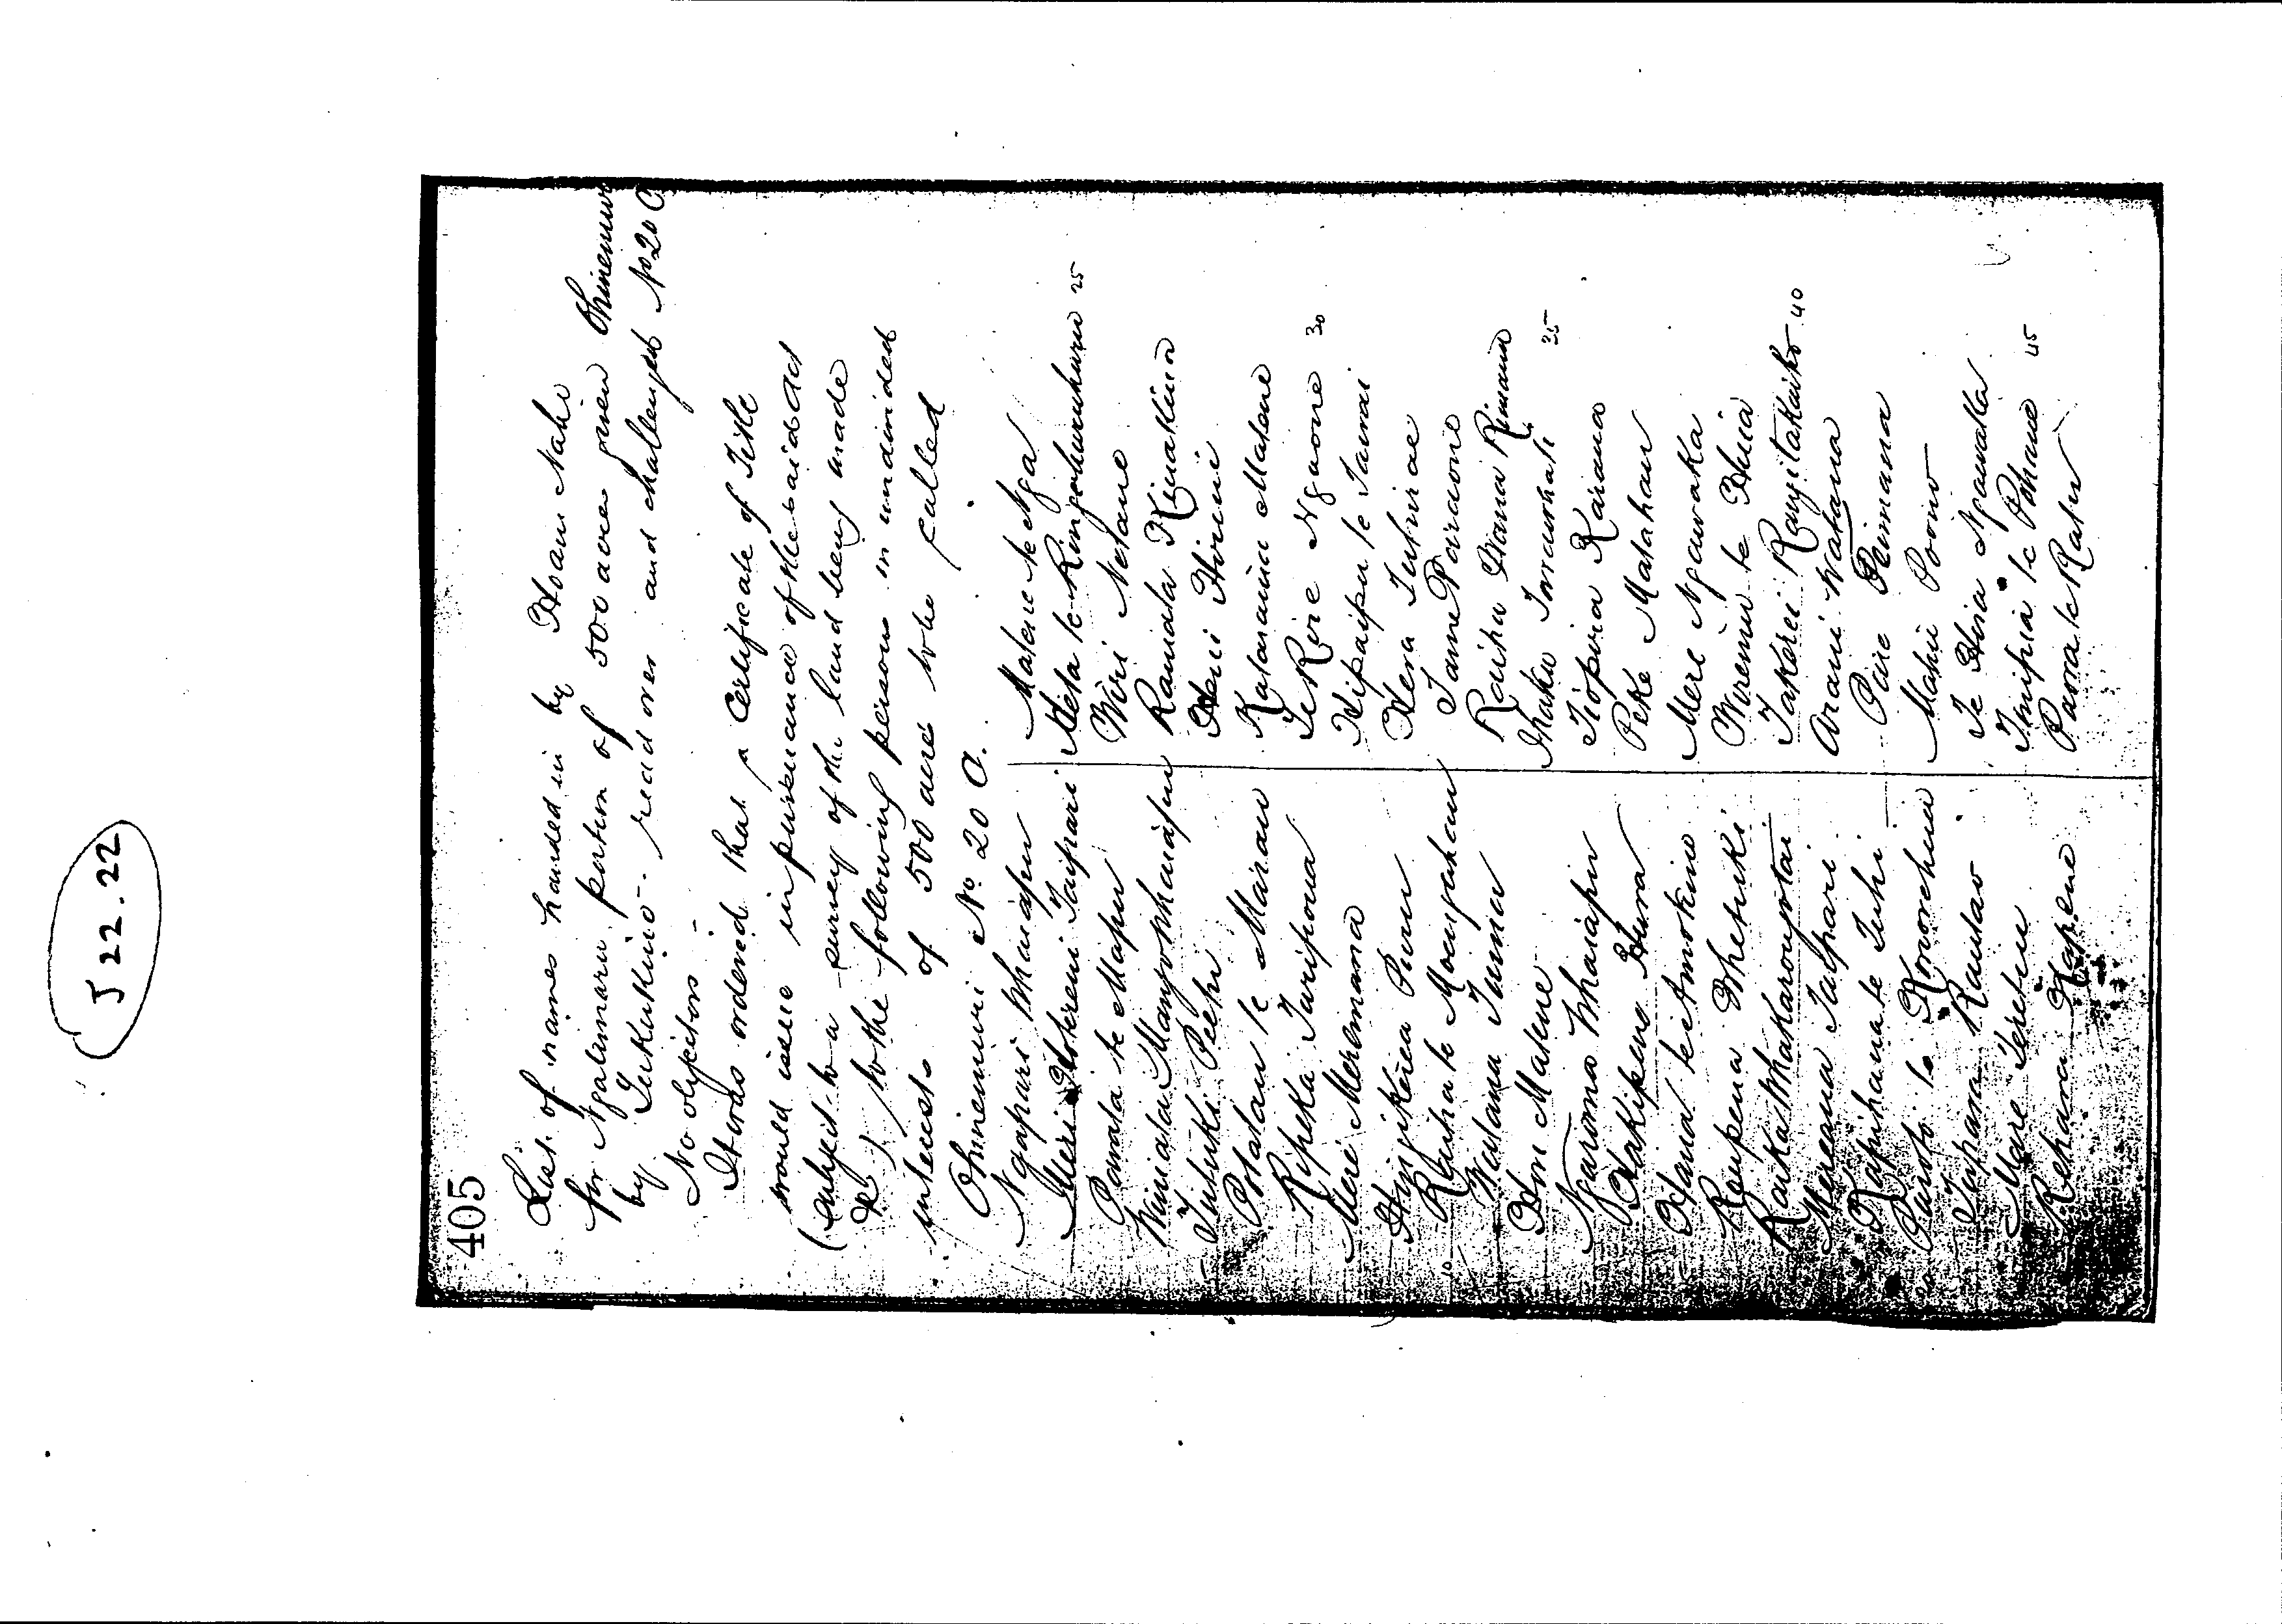 J 22.22
405
List of names handed in by Hoani Nahe
for Ngatimaru portion of 500 acres given Ohinemuri
by Tukukino - read over and challenged No 20 C
No objectors -
It was ordered that a Certificate of Title
would issue in pursuance of the said Act
(subject to a survey of the land being made
&c) to the following persons in undivided
interests of 500 acres to be called
Ohinemuri No 20 C.
Ngapari Whaiapu
Meri Taipari
Parata te Mapu
Winiata Mangowhaiapu
5 Tutuki Peehi
Potatau te Mairau
Ripeka Turipona
Meri Meremana
Hingikerea Puru
10 Raiha te Moungahau
Watana Tuma
Hori Matene
Ngaroma Whaiapu
Hakipene Hura
Hana te Amokino
Reupena Whetuki
Raika Whakarongotai
Mereana Taipari
Rapihana te Tuhi
20 te
Tuhana Rautao
Mare Teretiu
Rehara Kapene
Matene te Nga
Meta te Ringahuruhuru 25
Wiri Netane
Ramata Kinakina
Heni Hirini
Katarina Matene
Te Rire Ngaone 30
Hipaipa te Taurai
Hera Tuhirae
Tame Pairaone
Raiha Hana Rimana
Ihaka 35
Tiopira Karama
Peke Matahau
Mere Ngawaka
Wiremu te Huia
Takerei Rangitakaiko 40
Arani Watana
Paire Pinimana
Mahi
Te Hira Ngawaka
Timipia te Ohau 45
Para te Rahu